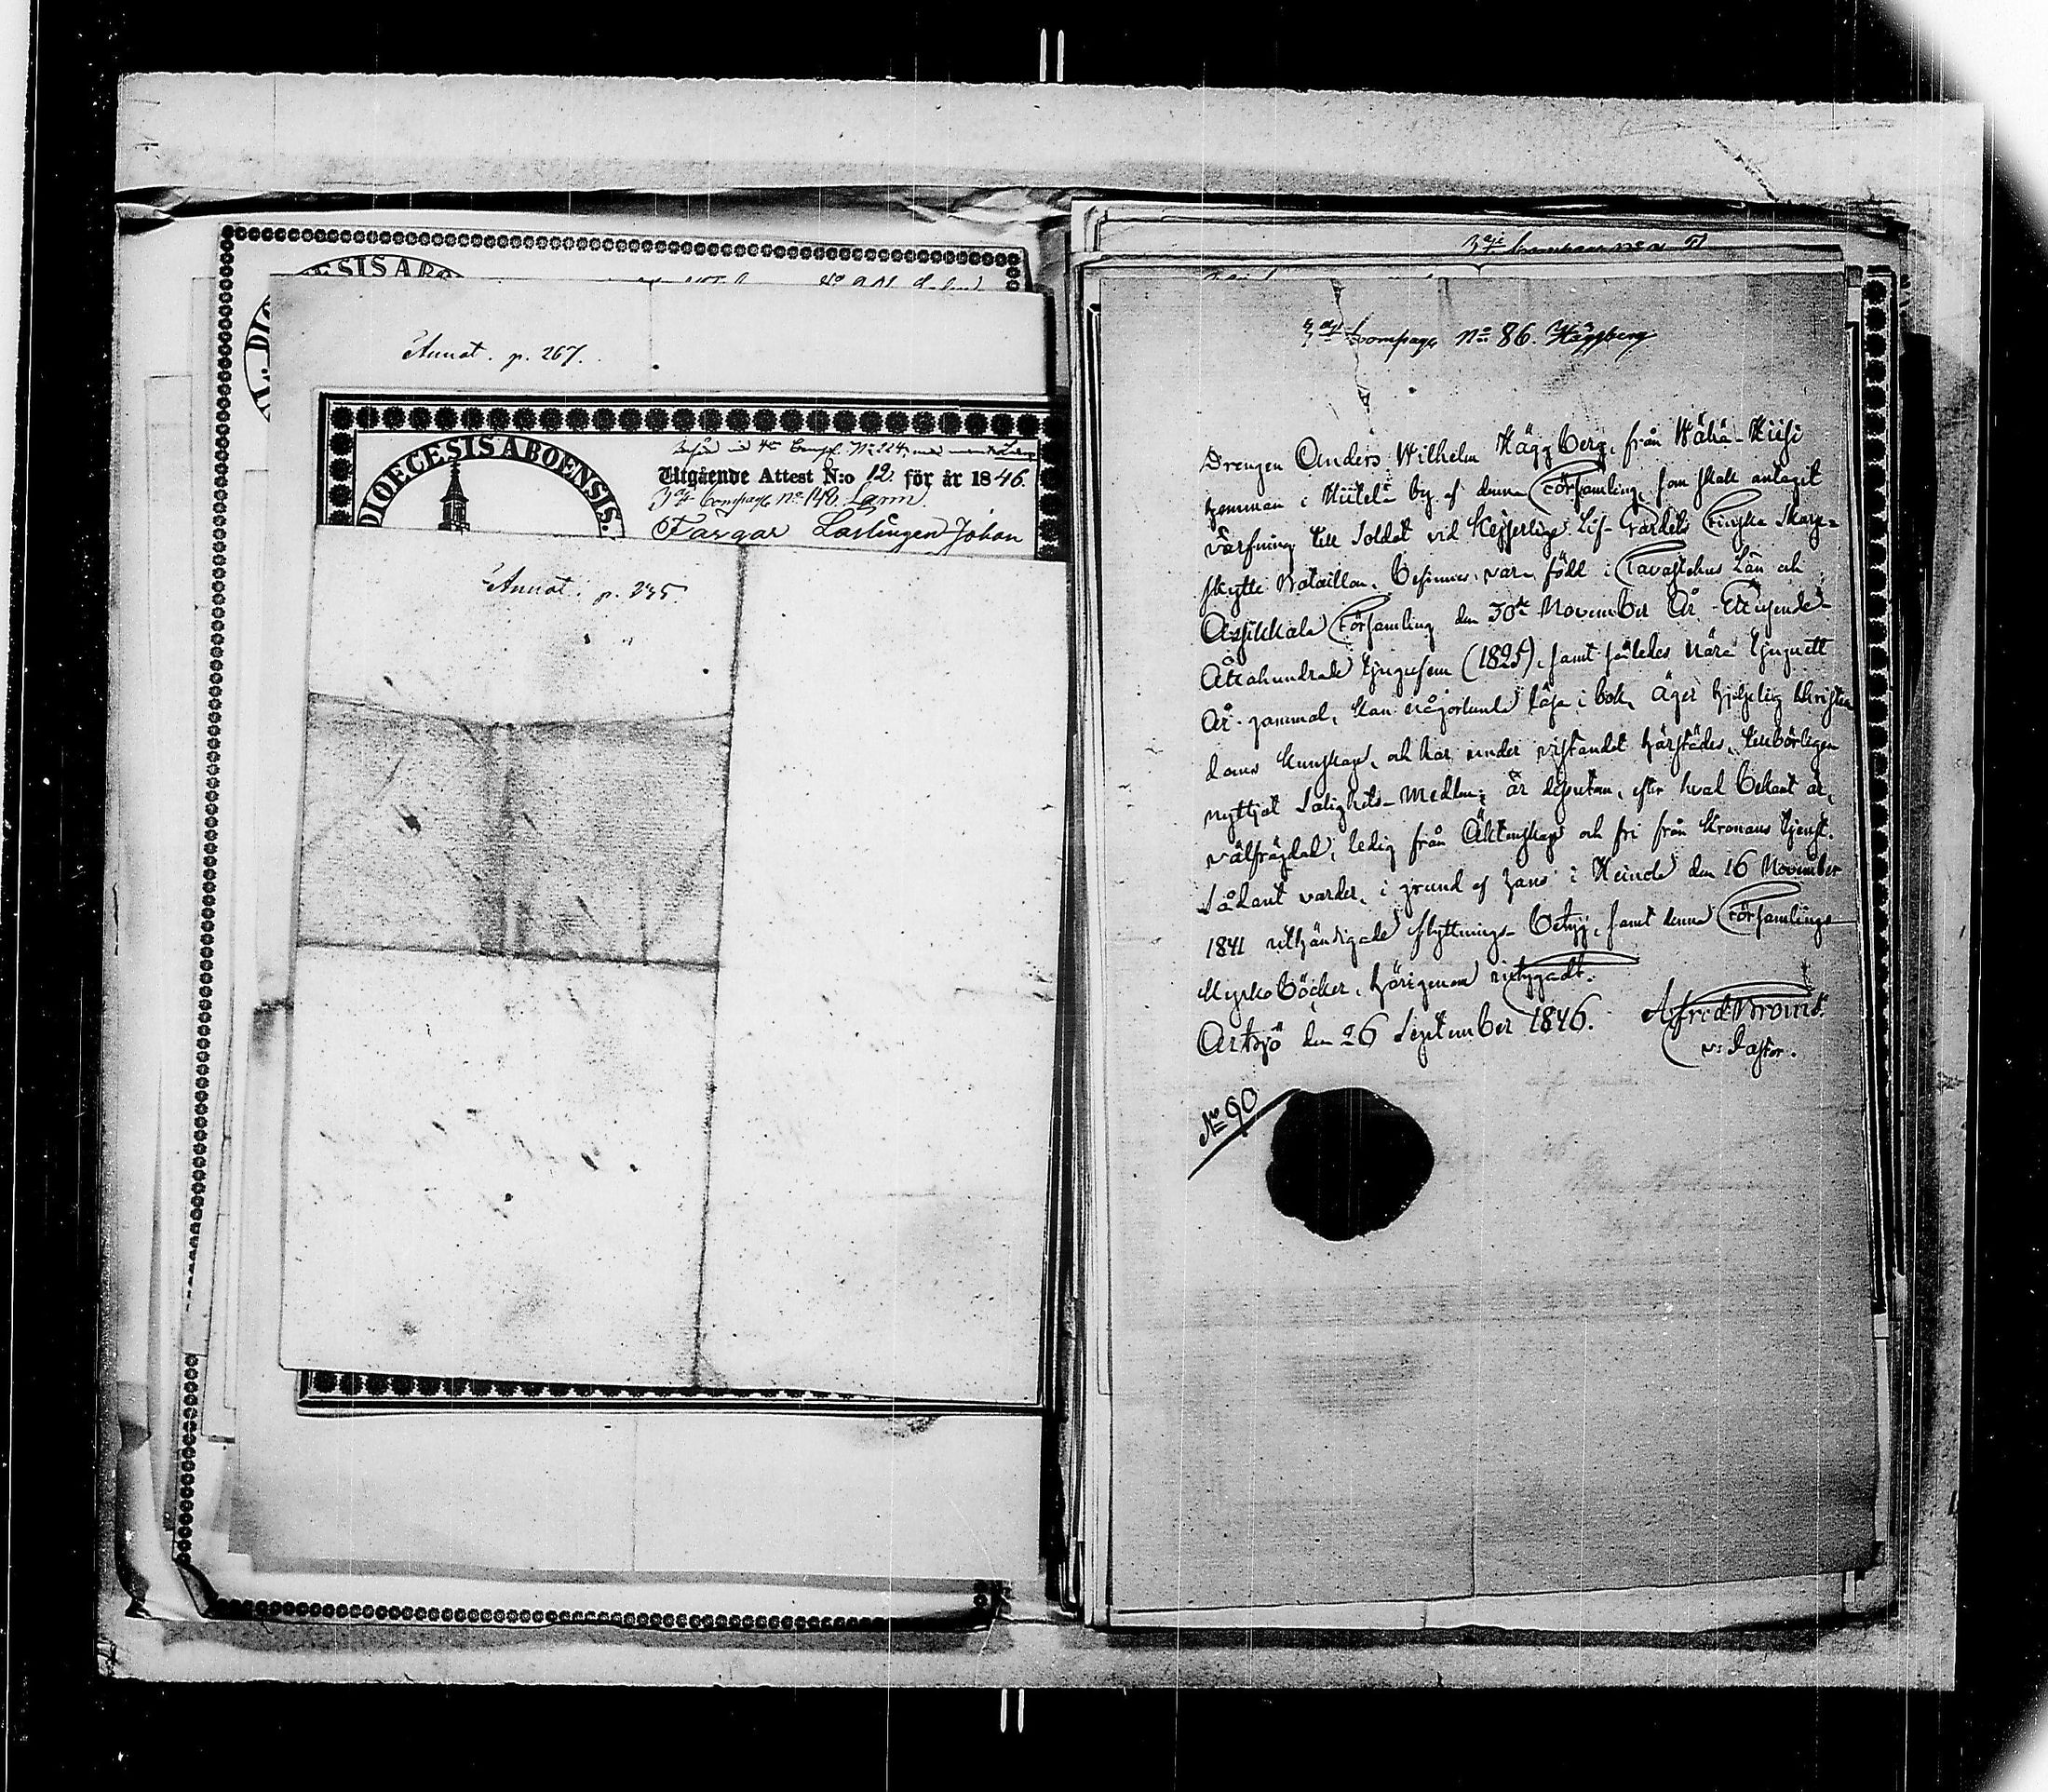 DIOECESIS ABO
Annot. p. 267.
DIOECESIS ABOENSIS.
4de Comp. No 224
Utgående Attest N:o 12. för år 1846.
3dje Compagn. No 148. Larm.
Färgar Lärlingen Johan
Annot. p. 235.
3dje Compagn. No 86. Häggberg
Drengen Anders Wilhelm Häggberg, från Wähä-Hiisi
hemman i Hiitelä by af denna Församling, som skall antagit
värfning till Soldat vid Kejserliga Lif-Gardets Finska Skarp-
skytte Bataillon, befinnes vara född i Tavastehus Län och
Asikkala Församling den 30de November År Ettusende-
Åttahundrade tjugufem (1825), samt således nära tjuguett
År gammal, kan någorlunda läsa i bok, äger hjelpelig Christen
doms kunskap, och har under vistandet härstädes, tillbörligen
nyttjat Salighets-medlen; är dessutan, efter hvad bekant är,
välfrägdad, ledig från Äktenskap och fri från Kronans tjenst.
Sådant varder, i grund af hans i Heinola den 16 November
1841 uthändigade flyttnings-betyg, samt denna Församlings
Kyrkoböcker, härigenom vittnadt.
Artsjö den 26 September 1846. Alfred Brovis
v. Pastor.
No 90